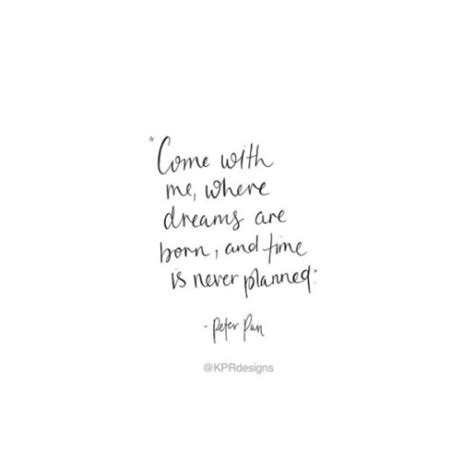 "Come with
me, where
dreams are
born, and time
is never planned."
- Peter Pan
@KPRdesigns